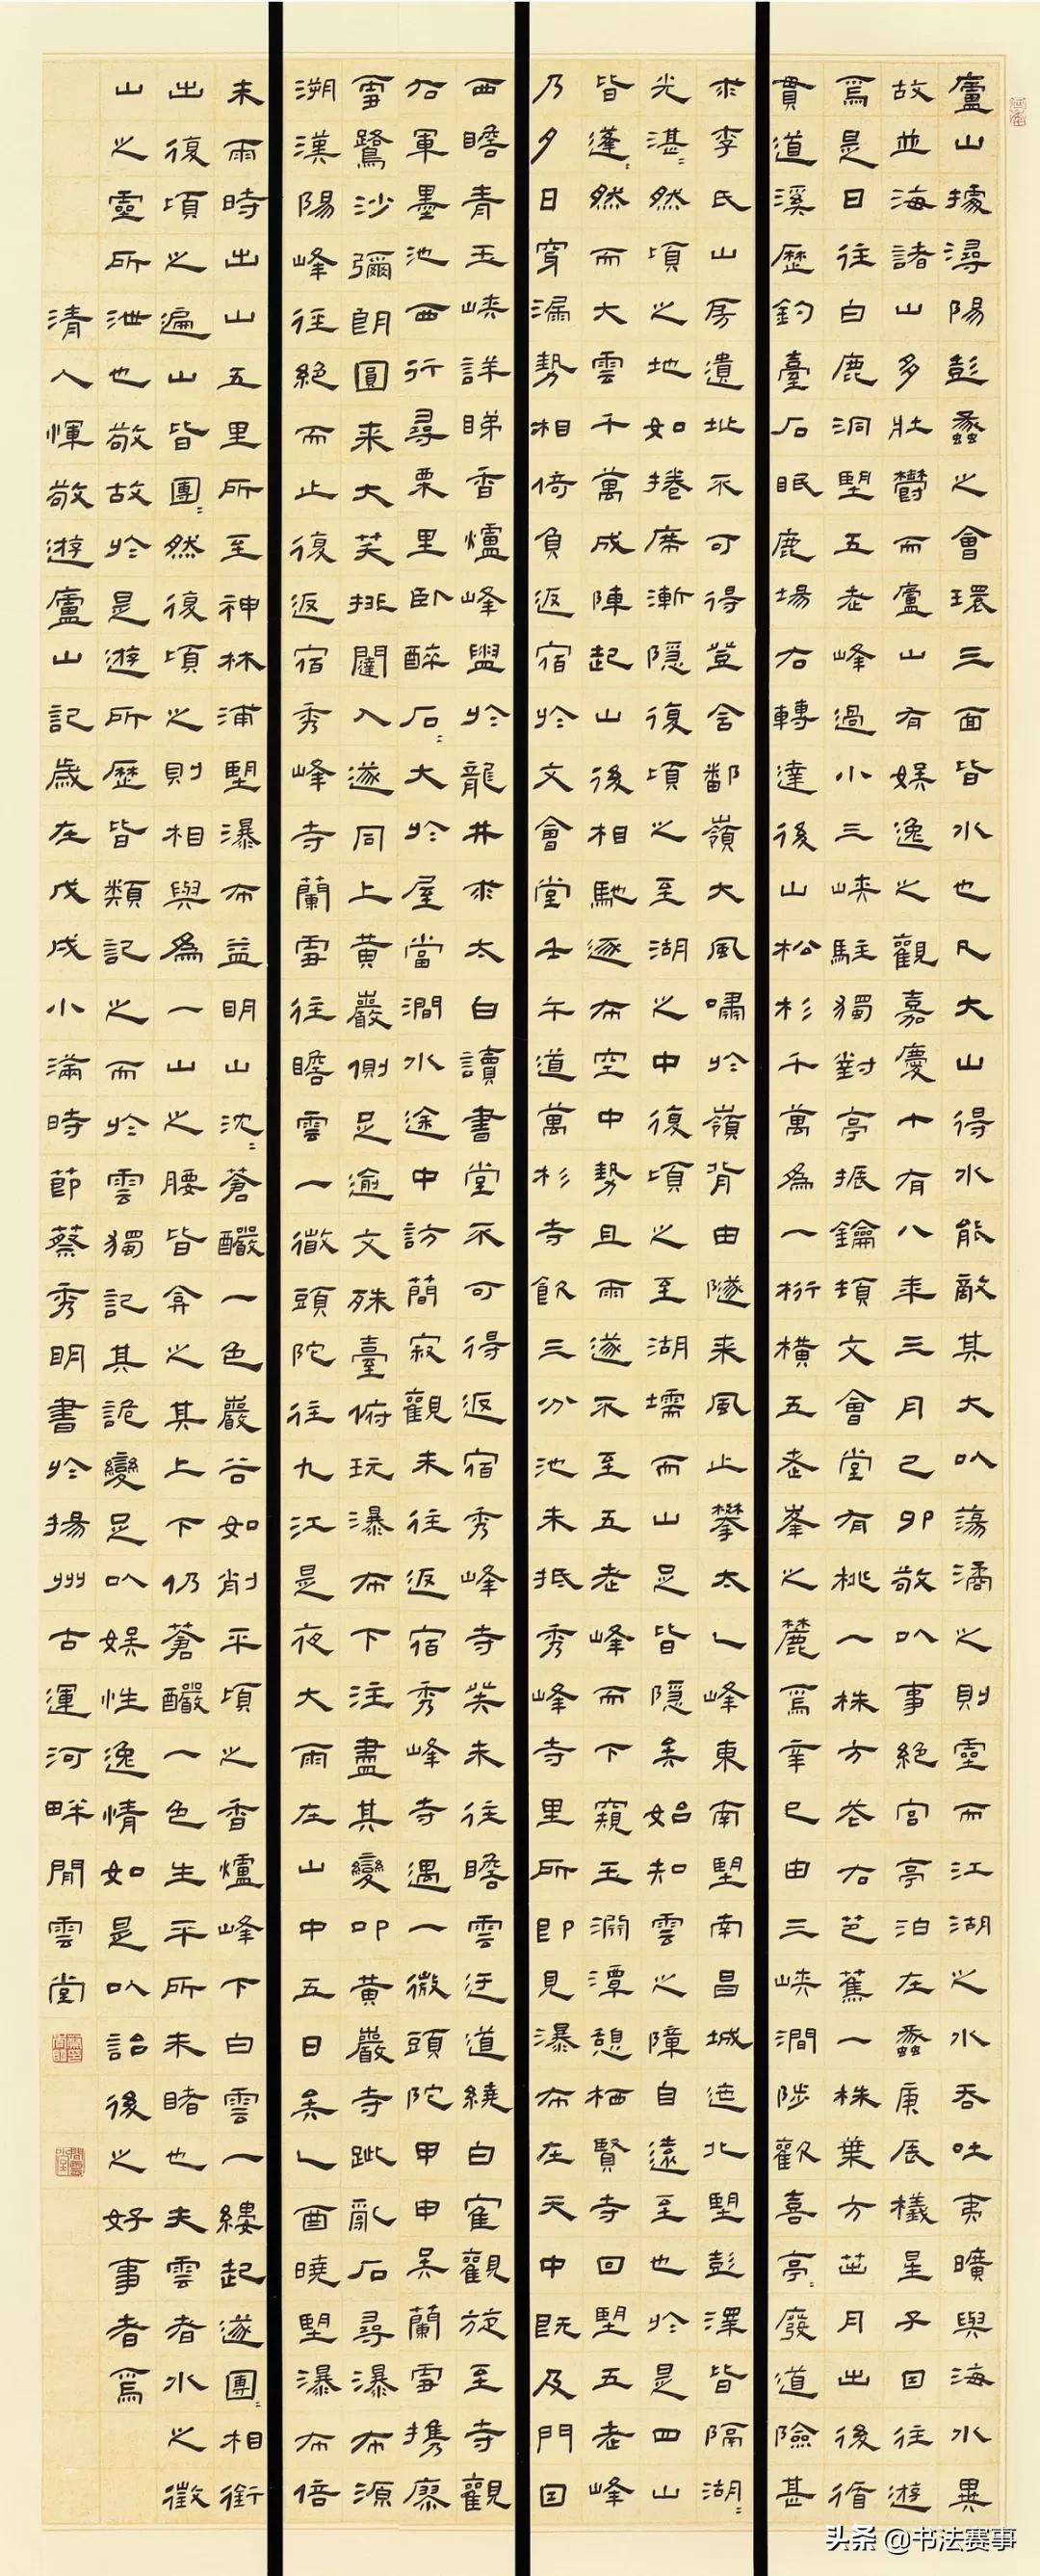 廬山據潯陽彭蠡之會環三面皆水也凡大山得水能敵其大以蕩潏之則靈而江湖之水吞吐夷曠與海水異
故並海諸山多壯鬱而廬山有娛逸之觀嘉慶十有八年三月己卯敬以事絕宮亭泊左蠡庚辰檥星子因往遊
焉是日往白鹿洞望五老峰過小三峽駐獨對亭振鑰頓文會堂有桃一株方花右芭蕉一株葉方茁月出後循
貫道溪歷釣臺石眠鹿場右轉達後山松杉千萬為一桁橫五老峯之麓焉辛巳由三峽澗陟歡喜亭亭廢道險甚
求李氏山房遺址不可得登含鄱嶺大風嘯於嶺背由隧來風止攀太乙峰東南望南昌城迤北望彭澤皆隔湖湖
光湛湛然頃之地如捲席漸隱復頃之至湖之中復頃之至湖壖而山足皆隱矣始知雲之障自遠至也於是四山
皆蓬蓬然而大雲千萬成陣起山後相馳逐布空中勢且雨遂不至五老峰而下窺玉淵潭憩栖賢寺回望五老峰
乃夕日穿漏勢相倚負返宿於文會堂壬午道萬杉寺飲三分池未抵秀峰寺里所即見瀑布在天中既及門因
西瞻青玉峽詳睇香爐峰盥於龍井求太白讀書堂不可得返宿秀峰寺癸未往瞻雲迂道繞白寉觀旋至寺觀
右軍墨池西行尋栗里臥醉石石大於屋當澗水途中訪簡寂觀未往返宿秀峰寺遇一微頭陀甲申吳蘭雪携廖
雪鷺沙彌朗圓来大笑排闥入遂同上黃巖側足逾文殊臺俯玩瀑布下注盡其變叩黃巖寺跐亂石尋瀑布源
溯漢陽峰徑絕而止復返宿秀峰寺蘭雪往瞻雲一微頭陀往九江是夜大雨在山中五日矣乙酉曉望瀑布倍
未雨時出山五里所至神林浦望瀑布益明山沈沈蒼釅一色巖谷如削平頃之香爐峰下白雲一縷起遂團團相銜
出復頃之遍山皆團團然復頃之則相與為一山之腰皆弇之其上下仍蒼釅一色生平所未睹也夫雲者水之徵
山之靈所泄也敬故於是遊所歷皆類記之而於雲獨記其詭變足以娛性逸情如是以詒後之好事者焉
清人惲敬遊廬山記歲在戊戌小滿時節蔡秀明書於揚州古運河畔閒雲堂
头条 @书法赛事